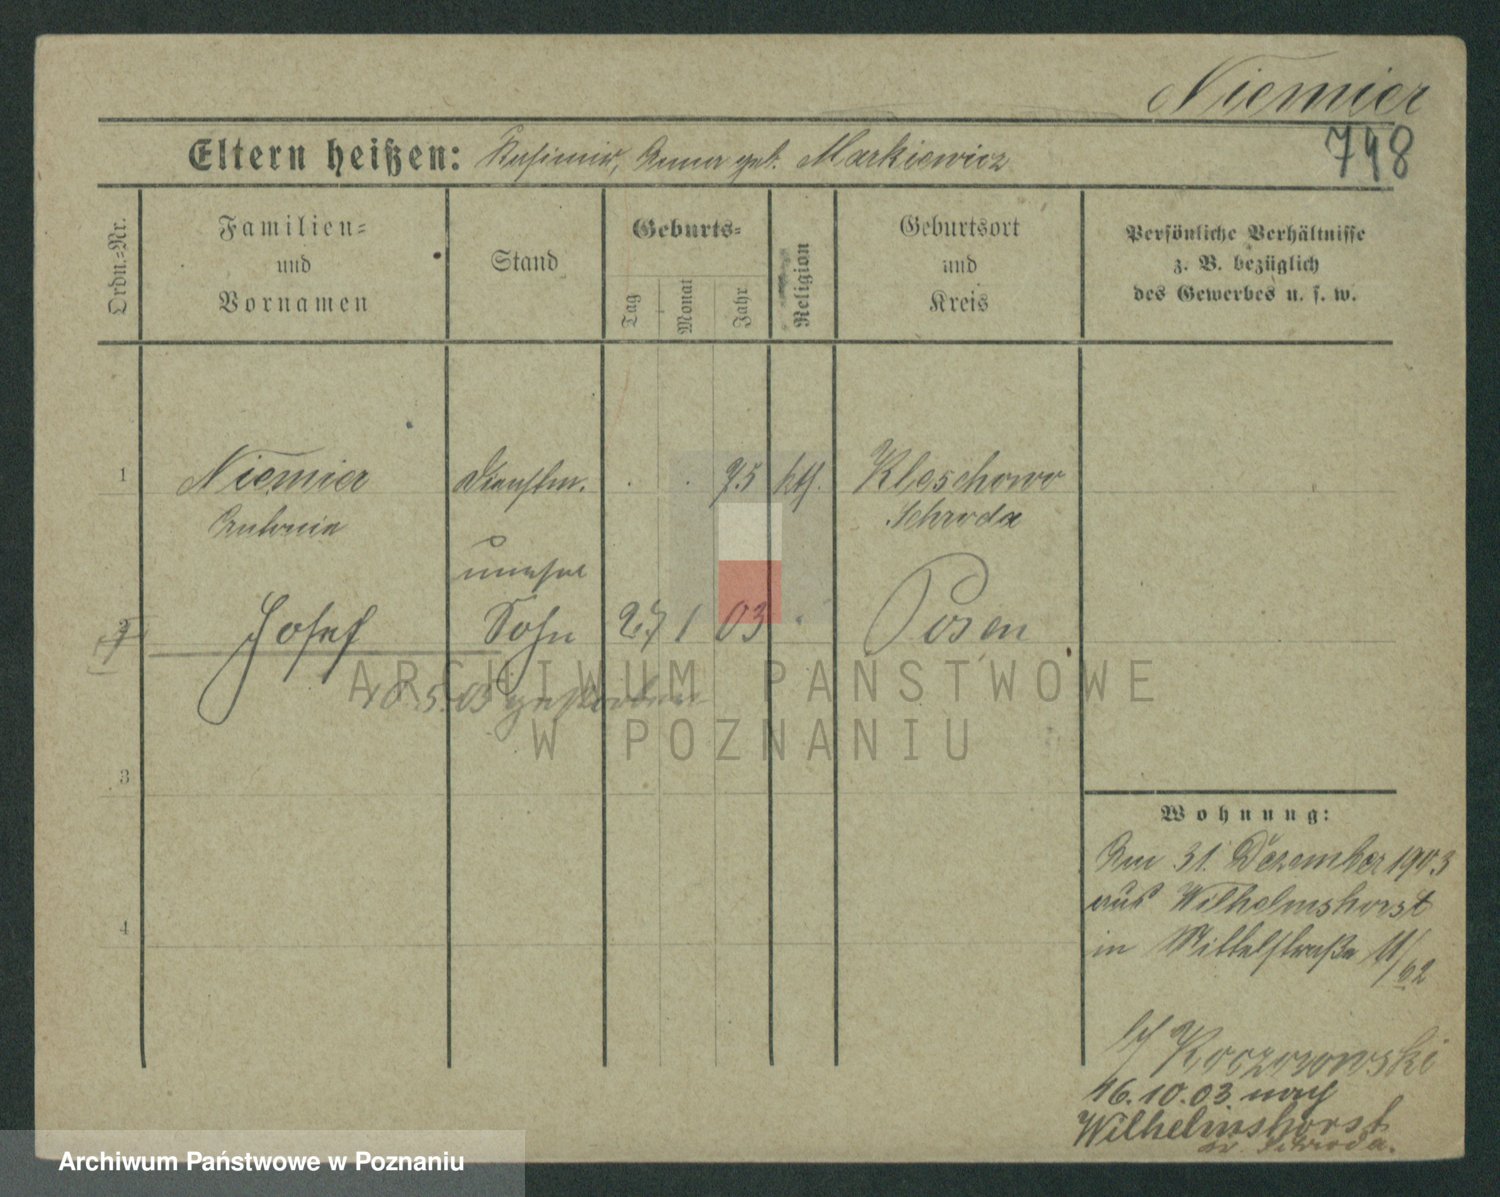 Niemier
748
Eltern heißen: Kasimir, Anna geb. Markiewicz
Ordn.-Nr.
Familien-
und
Vornamen
Stand
Geburts-
Tag
Monat
Jahr
Religion
Geburtsort
und
Kreis
Persönliche Verhältnisse
z. B. bezüglich
des Gewerbes u. s. w.
1 Niemier Dienstm. 75 kth. Kleschowo
Antonie Schroda
unehel
2 Josef Sohn 27 1 03 Posen
10.5.03 gestorben
3
4
Wohnung:
Am 31. Dezember 1903
aus Wilhelmshorst
in Mittelstraße 11/62
b/ Koczorowski
16.10.03 nach
Wilhelmshorst
Kr. Schroda.
ARCHIWUM PAŃSTWOWE
W POZNANIU
Archiwum Państwowe w Poznaniu